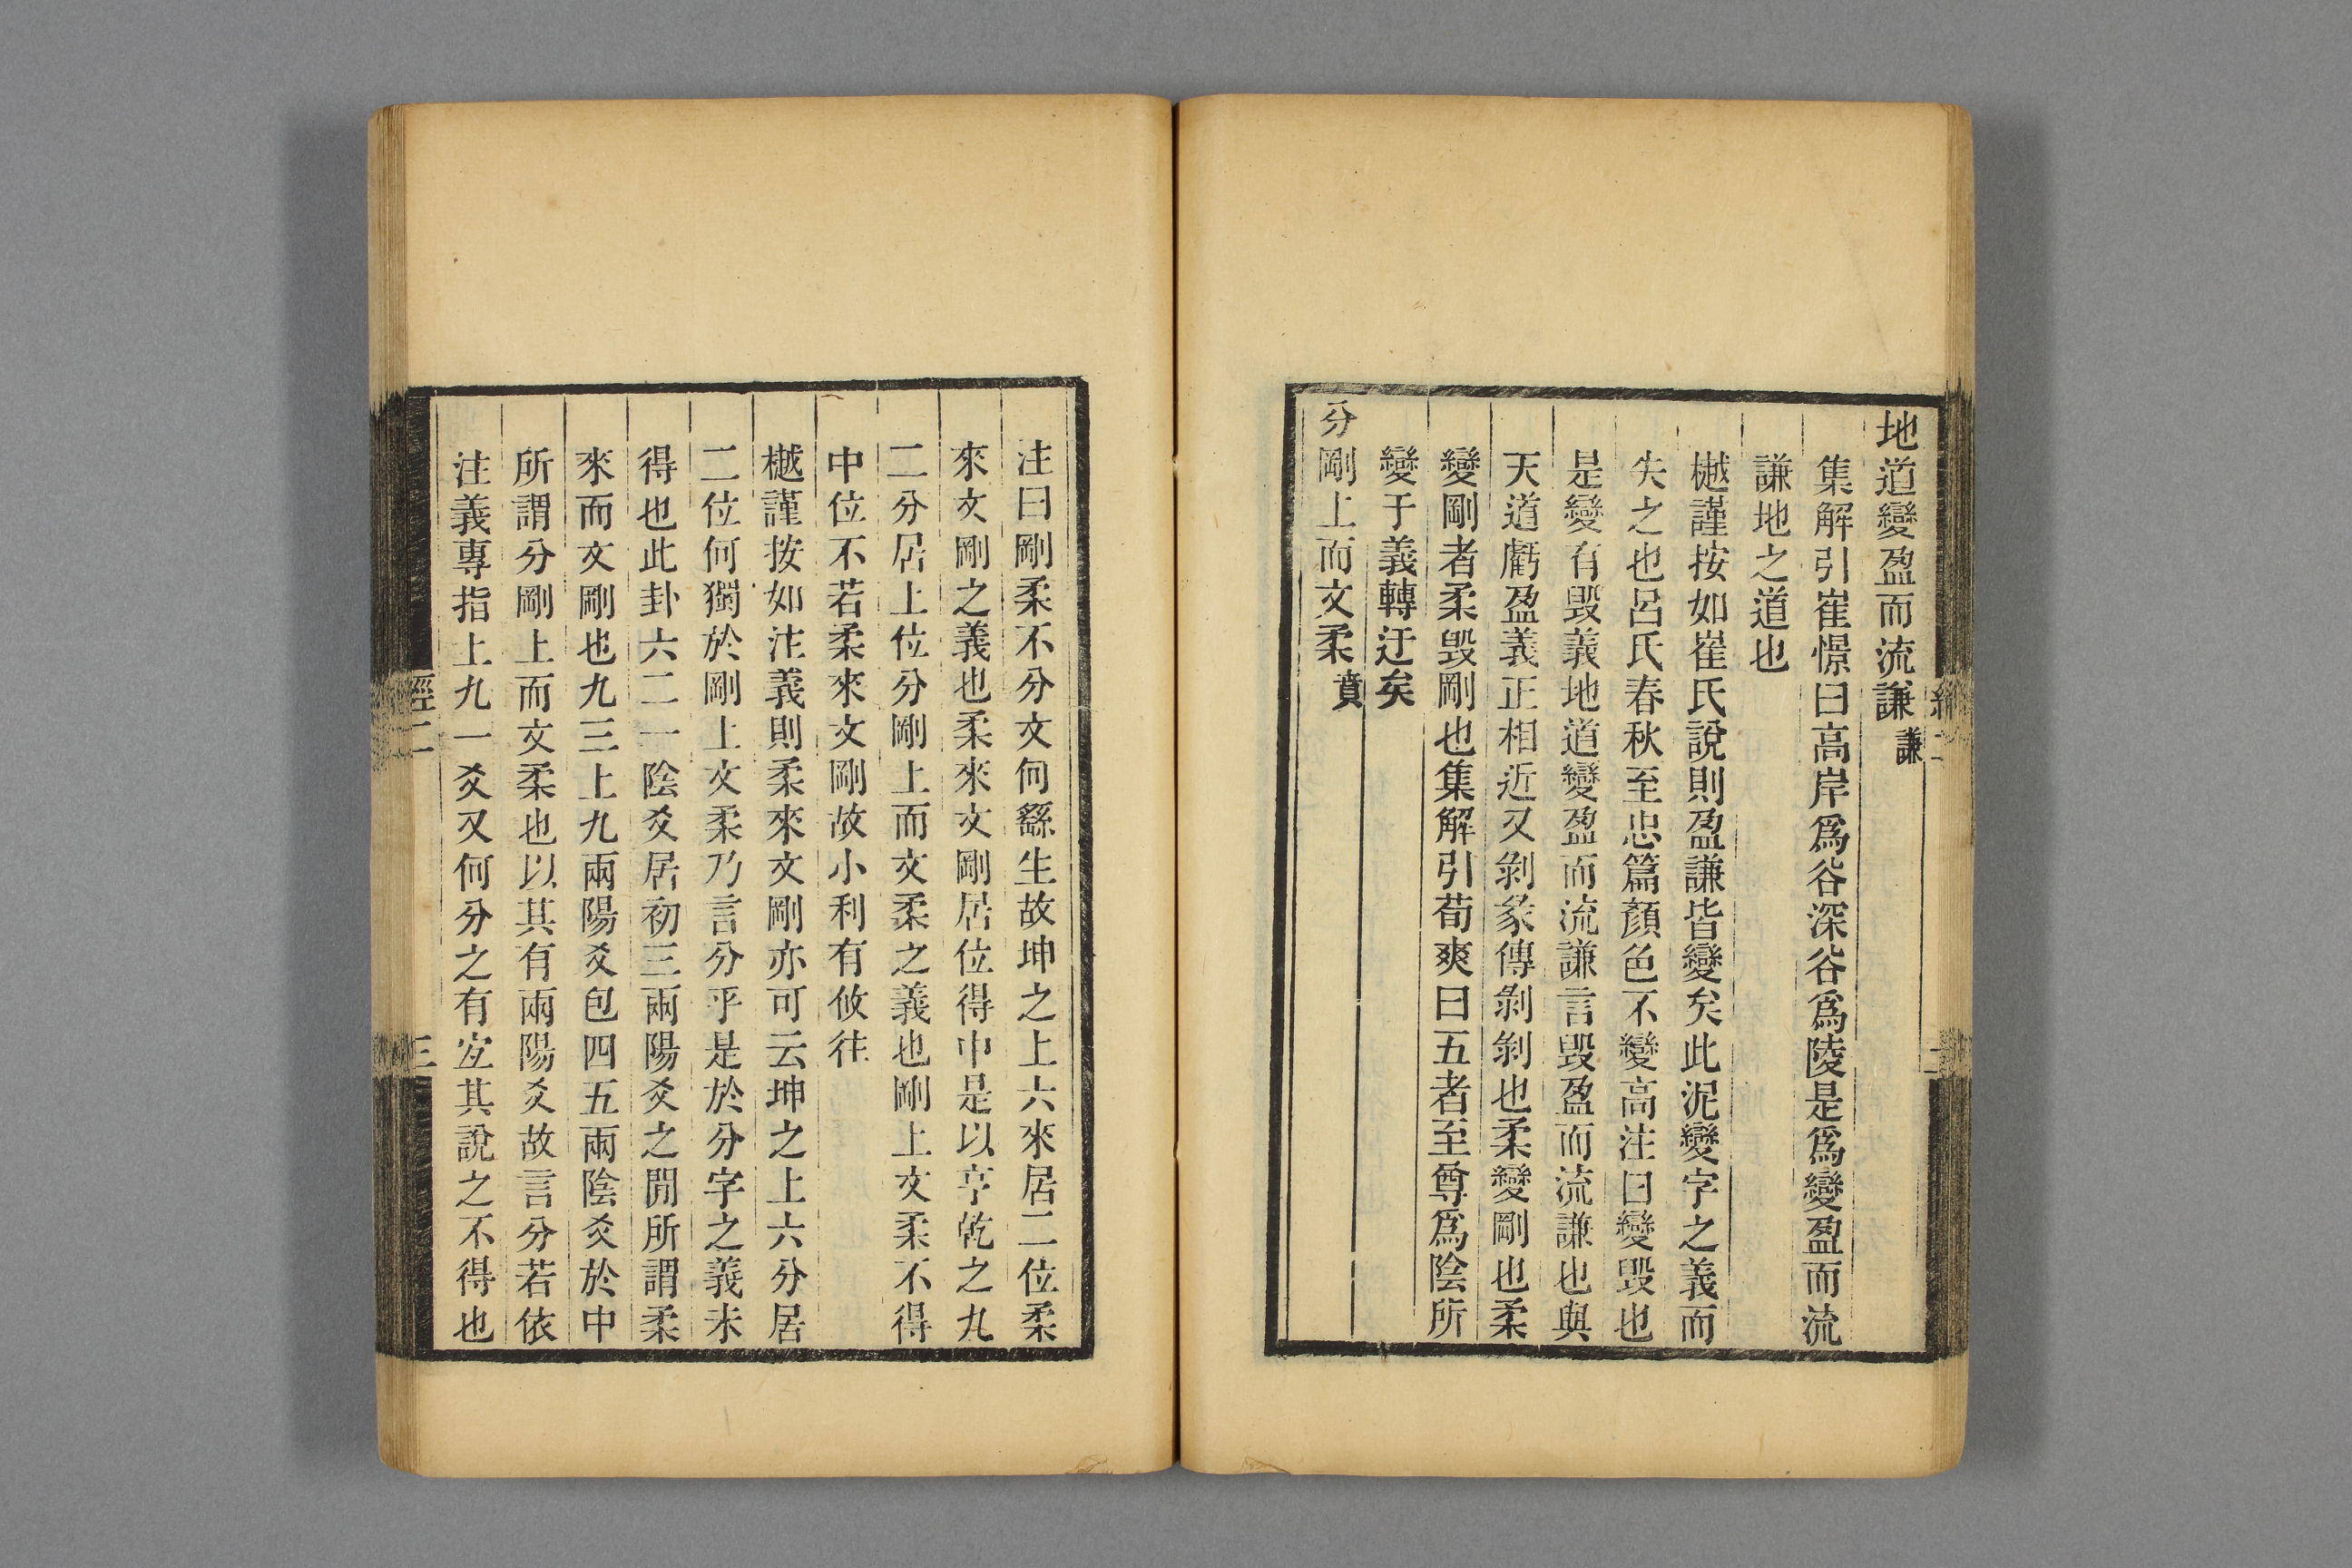 地道變盈而流謙謙
集解引崔憬曰高岸爲谷深谷爲陵是爲變盈而流
謙地之道也
樾謹按如崔氏說則盈謙皆變矣此泥變字之義而
失之也呂氏春秋至忠篇顏色不變高注曰變毀也
是變有毀義地道變盈而流謙言毀盈而流謙也與
天道虧盈義正相近又剝彖傳剝剝也柔變剛也柔
變剛者柔毀剛也集解引荀爽曰五者至尊爲陰所
變于義轉迂矣
分剛上而文柔賁
注曰剛柔不分文何繇生故坤之上六來居二位柔
來文剛之義也柔來文剛居位得中是以亨乾之九
二分居上位分剛上而文柔之義也剛上文柔不得
中位不若柔來文剛故小利有攸往
樾謹按如注義則柔來文剛亦可云坤之上六分居
二位何獨於剛上文柔乃言分乎是於分字之義未
得也此卦六二一陰爻居初三兩陽爻之閒所謂柔
來而文剛也九三上九兩陽爻包四五兩陰爻於中
所謂分剛上而文柔也以其有兩陽爻故言分若依
注義專指上九一爻又何分之有宜其說之不得也
經二
三